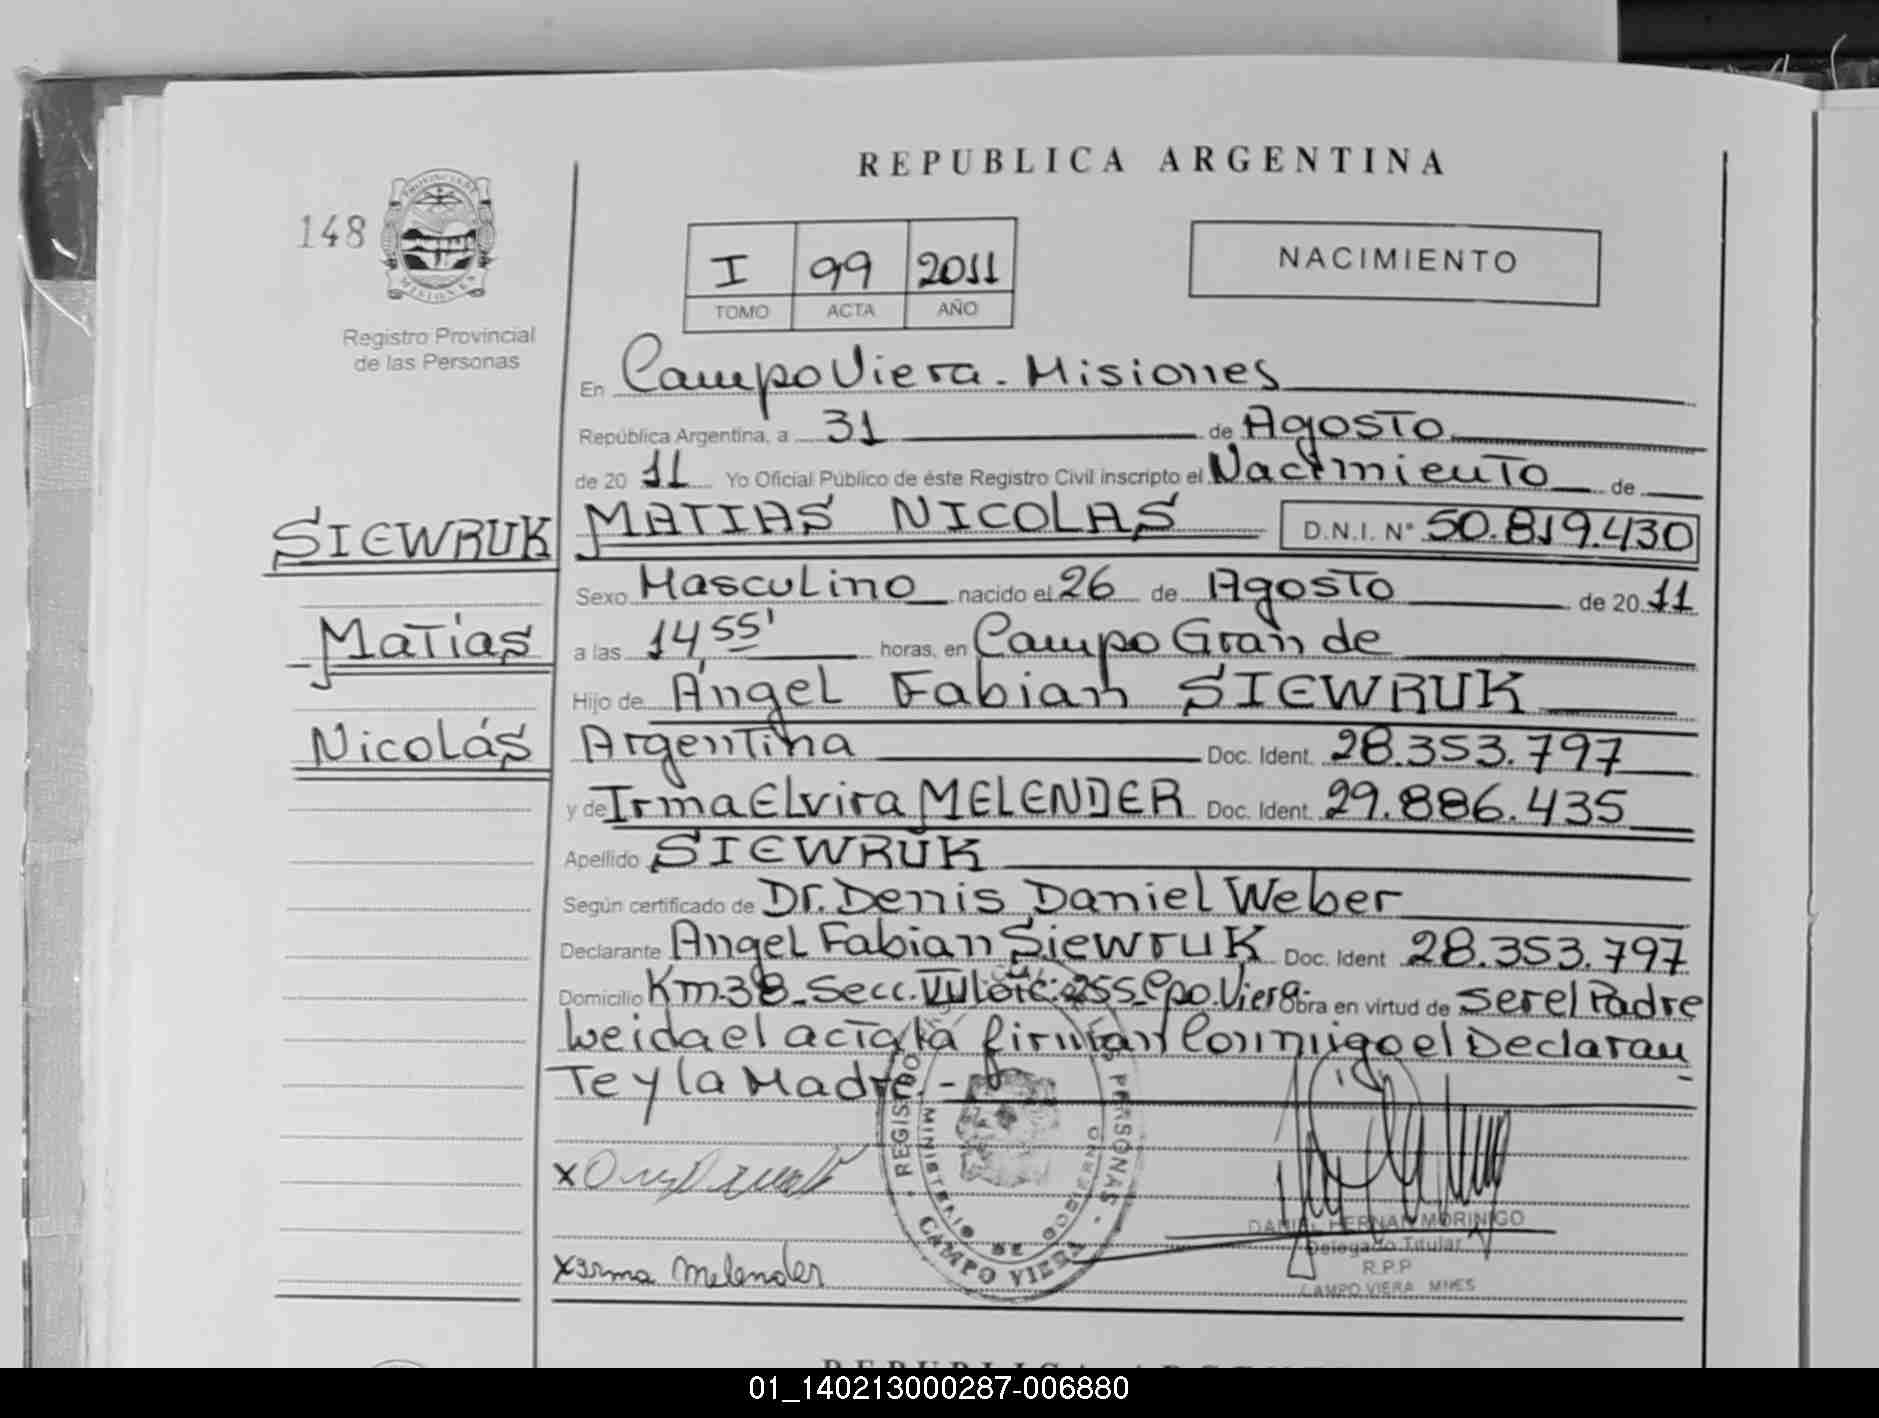 REPUBLICA ARGENTINA
148
PROVINCIA DE
MISIONES
Registro Provincial
de las Personas
I 99 2011
TOMO ACTA AÑO
NACIMIENTO
En Campo Viera - Misiones
República Argentina, a 31 de Agosto
de 2011 Yo Oficial Público de éste Registro Civil inscripto el Nacimiento de
SIEWRUK
Matías
Nicolás
MATIAS NICOLAS D.N.I. N° 50.819.430
Sexo Masculino nacido el 26 de Agosto de 2011
a las 14,55' horas, en Campo Grande
Hijo de Angel Fabian SIEWRUK
Argentina Doc. Ident. 28.353.797
y de Irma Elvira MELENDER Doc. Ident. 29.886.435
Apellido SIEWRUK
Según certificado de Dr. Denis Daniel Weber
Declarante Angel Fabian Siewruk Doc. Ident 28.353.797
Domicilio Km.38 - Secc. 255 Cpo. Viera. Obra en virtud de ser el Padre
Leida el acta la firman Conmigo el Declaran
Te y la Madre. -
REGISTRO LAS PERSONAS
MINISTERIO DE GOBIERNO
CAMPO VIERA
X
X Irma Melender
DANIEL HERNAN MORINIGO
Delegado Titular
R.P.P
CAMPO VIERA MNES
REPUBLICA ARGENTINA
01_140213000287-006880